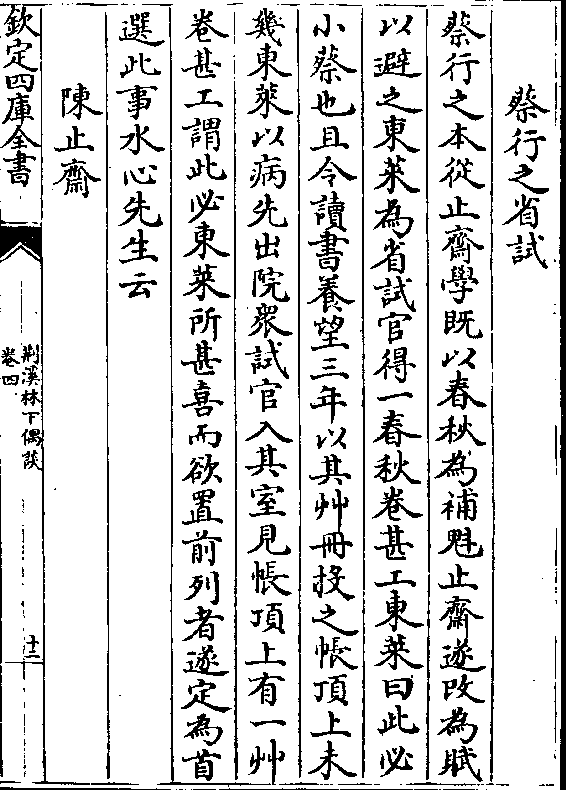 蔡行之省試
蔡行之本從止齋學既以春秋為補魁止齋遂改為賦
以避之東萊為省試官得一春秋卷甚工東萊曰此必
小蔡也且令讀書養望三年以其艸冊投之帳頂上未
幾東萊以病先出院衆試官入其室見帳頂上有一艸
卷甚工謂此必東萊所甚喜而欲置前列者遂定為首
選此事水心先生云
陳止齋
欽定四庫全書
荆溪林下偶談
卷四
十二